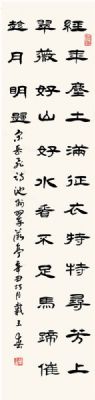 經年塵土滿征衣特特尋芳上
翠薇好山好水看不足馬蹄催
趁月明歸
宋岳飛詩池州翠薇亭辛丑巧月戴玉春